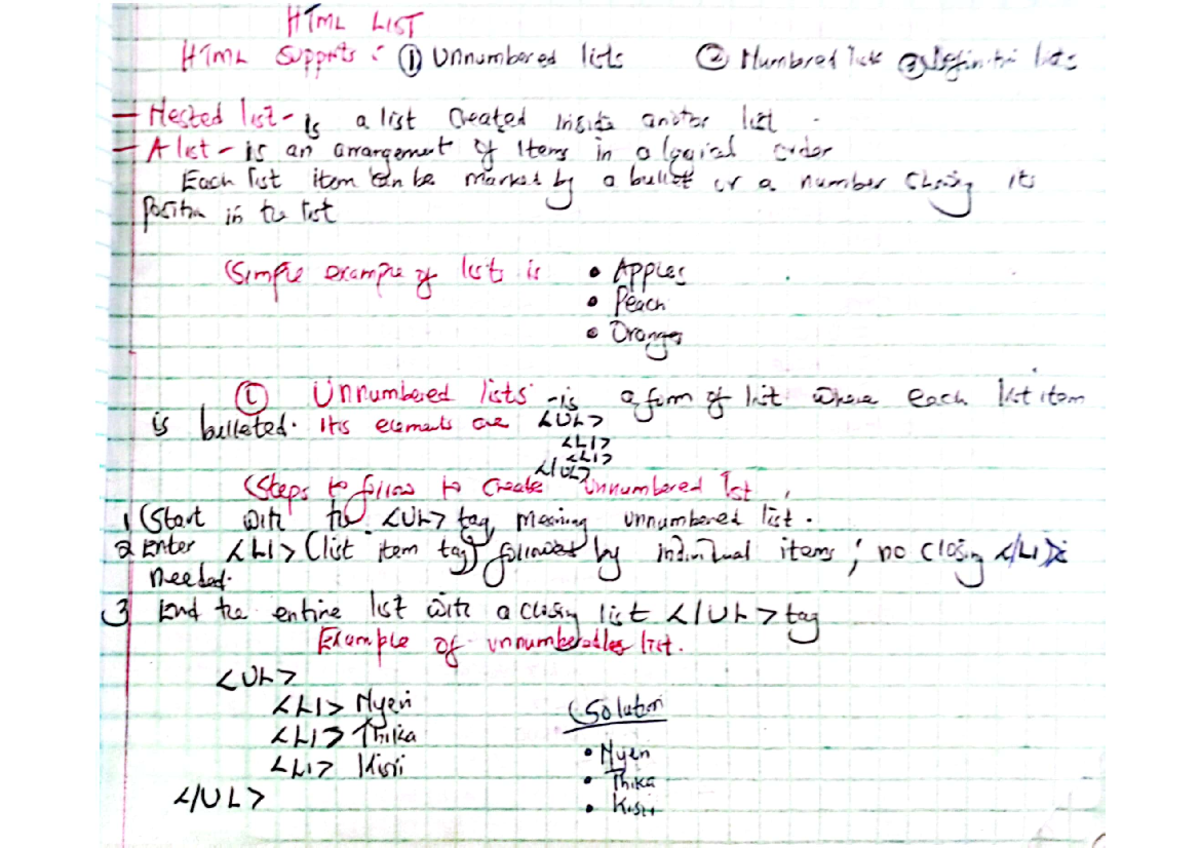 HTML LIST
HTML Supports : ① Unnumbered lists ② Numbered lists ③ Definition lists
- Nested list - is a list Created inside another list .
- A list - is an arrangement of Items in a logical order
Each list item can be marked by a bullet or a number its
Position in the list
Simple example of lists is
• Apples
• Peach
• Oranges
① Unnumbered lists - is a form of list where each list item
is bulleted. Its elements are <UL>
<LI>
<LI>
</UL>
Steps to follow to Create Unnumbered list
1 Start with the <UL> tag, meaning unnumbered list .
2 Enter <LI> (list item tag) followed by individual items ; no closing </LI> is
needed.
3 End the entire list with a closing list </UL> tag
Example of list.
<UL>
<LI> Nyeri
<LI> Thika
<LI> Kisii
</UL>
Solution
• Nyeri
• Thika
• Kisii